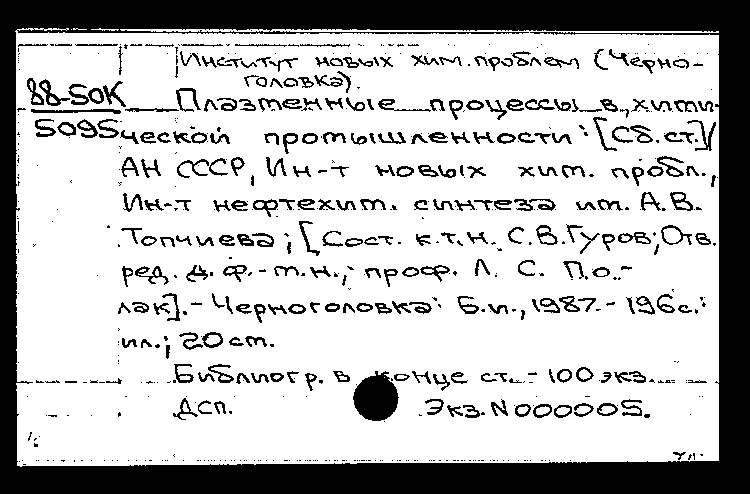 Институт новых хим.проблем (Черно-
головка).
88-50К
5095
Плазменные процессы в хими-
ческой промышленности: [Сб.ст.]/
АН СССР, Ин-т новых хим. пробл.,
Ин-т нефтехим. синтеза им. А.В.
Топчиева; [Сост. к.т.н. С.В.Гуров; Отв.
ред. д.ф.-м.н., проф. Л. С. По-
лак].- Черноголовка: Б.и., 1987.- 196с.:
ил.; 20 см.
Библиогр. в конце ст. - 100 экз.
ДСП. Экз. N 000005.